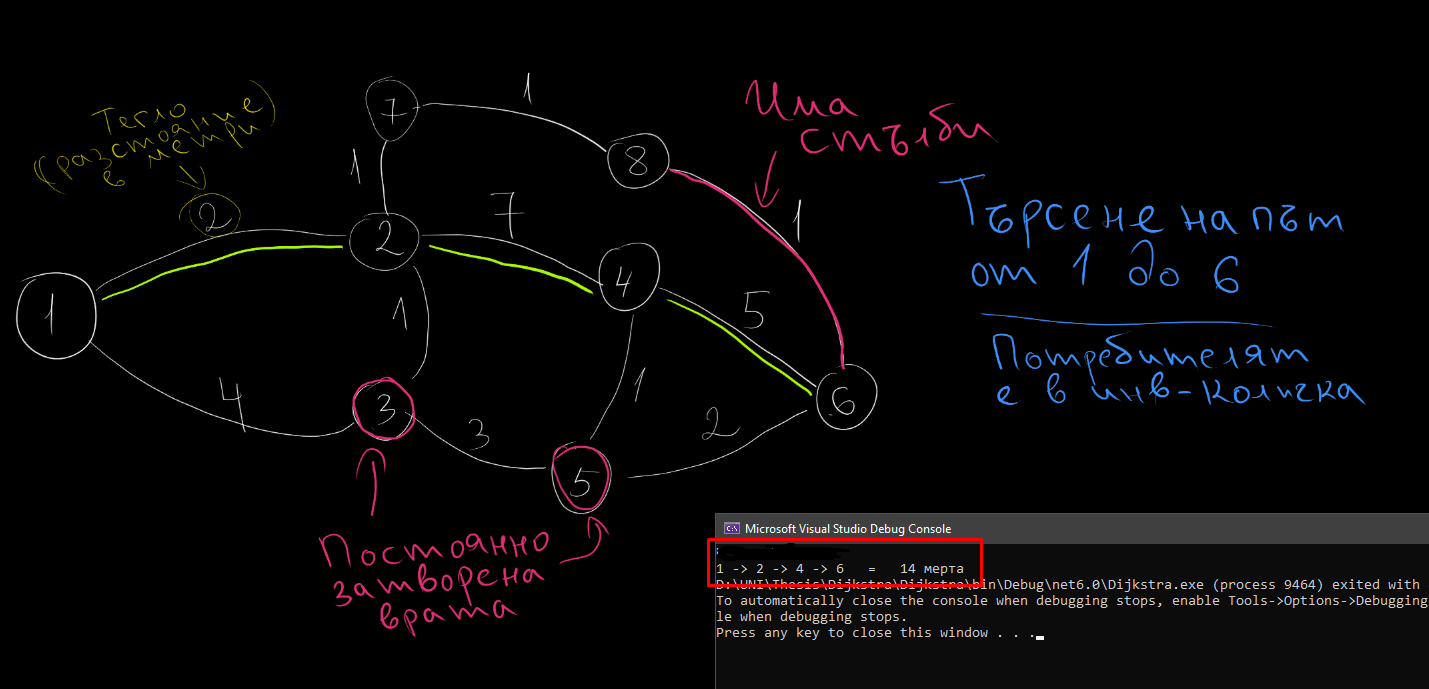 Тегло
(разстояние
в метри)
2
7
1
8
1
Има
стълби
1
2
7
4
1
Търсене на път
от 1 до 6
Потребителят
е в инв-количка
1
1
5
4
3
3
1
5
2
6
Постоянно
затворена
врата
Microsoft Visual Studio Debug Console
1 -> 2 -> 4 -> 6 = 14 мерта
D:\UNI\Thesis\Dijkstra\Dijkstra\bin\Debug\net6.0\Dijkstra.exe (process 9464) exited with
To automatically close the console when debugging stops, enable Tools->Options->Debugging
le when debugging stops.
Press any key to close this window . . .